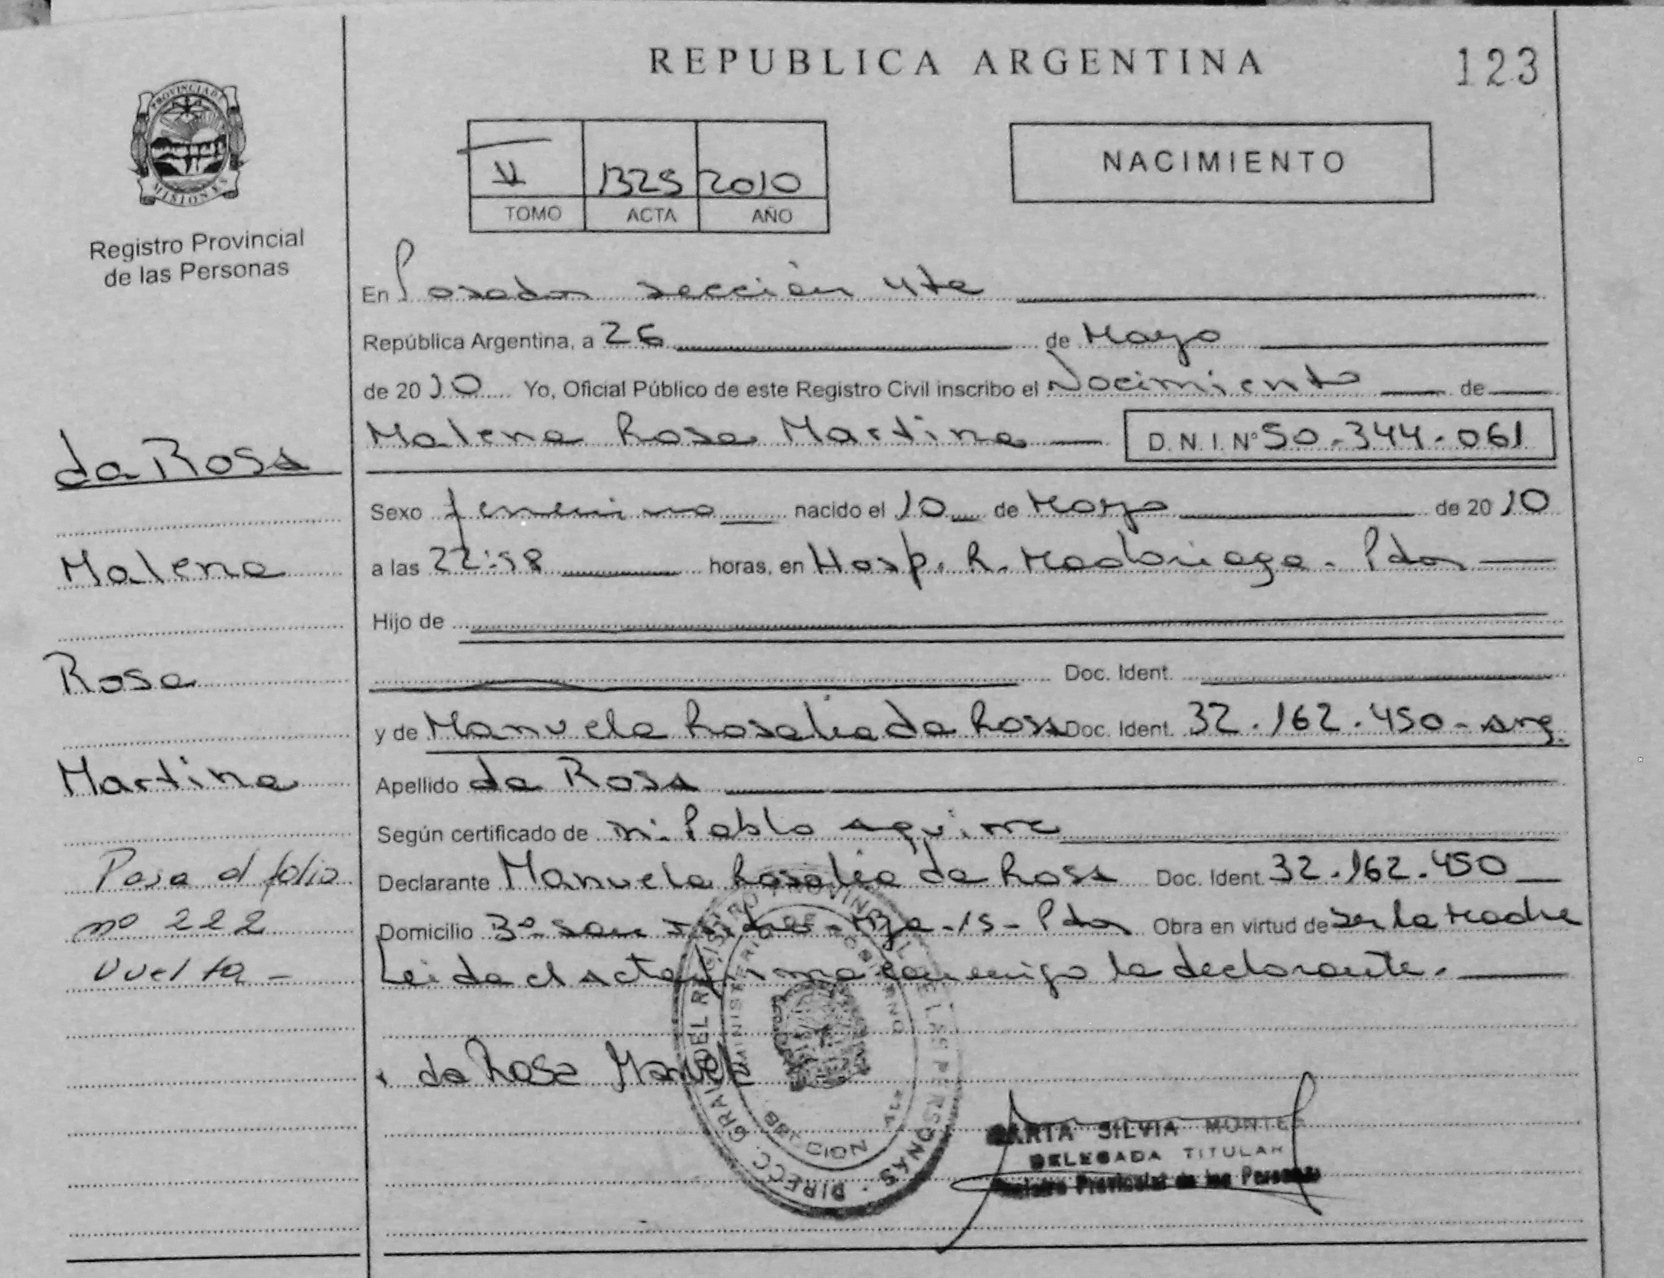 REPUBLICA ARGENTINA
123
PROVINCIA DE
MISIONES
Registro Provincial
de las Personas
II 1325 2010
TOMO ACTA AÑO
NACIMIENTO
En Posadas sección 4ta
República Argentina, a 26 de Mayo
de 2010 Yo, Oficial Público de este Registro Civil inscribo el Nacimiento de
Malena Rosa Martina D.N.I. Nº 50.344.061
Sexo femenino nacido el 10 de Mayo de 2010
a las 22:58 horas, en Hosp. R. Madariaga. Pdas
Hijo de
Doc. Ident.
y de Manuela Rosalia da Rosa Doc. Ident. 32.162.450 - arg.
Apellido da Rosa
Según certificado de M. Pablo Aguirre
Declarante Manuela Rosalia da Rosa Doc. Ident. 32.162.450
Domicilio San Isidro - Mza - 15 - Pdas Obra en virtud de ser la Madre
Leida el Acta firma conmigo la declarante.
da Rosa Manuela
da Rosa
Malena
Rosa
Martina
Pasa al folio
nº 222
Vuelta -
DIRECC. GRAL. DEL REGISTRO PROVINCIAL DE LAS PERSONAS
MINISTERIO DE GOBIERNO
MARTA SILVIA MONTES
DELEGADA TITULAR
Registro Provincial de las Personas